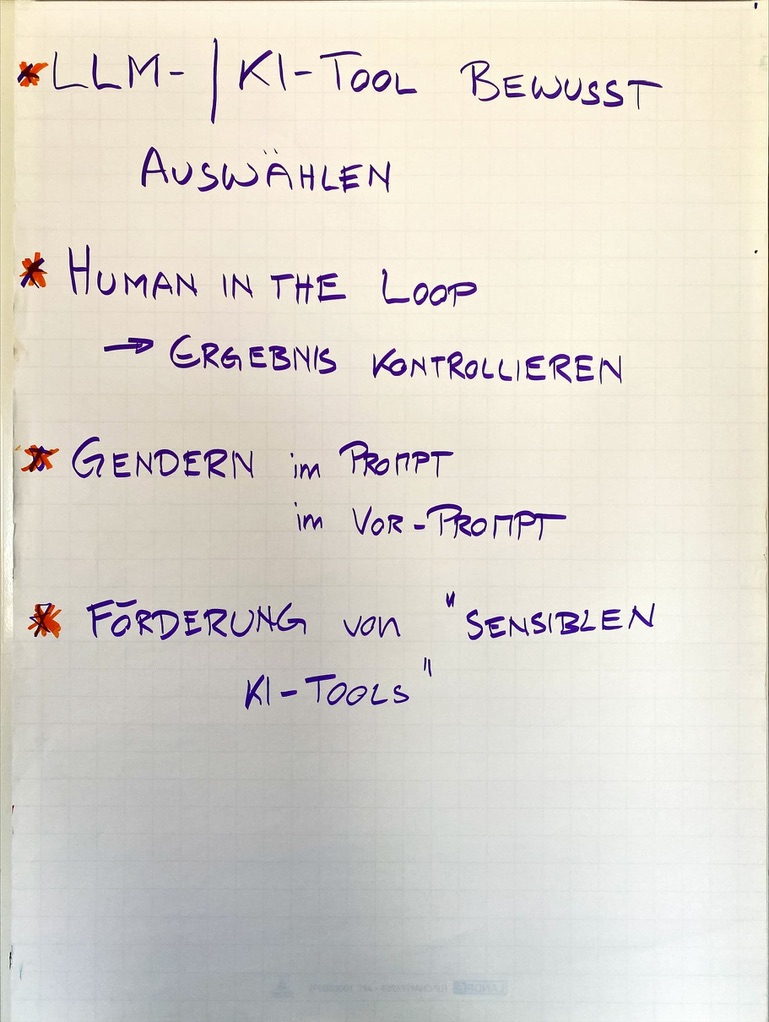 * LLM- / KI-TOOL BEWUSST
AUSWÄHLEN
* HUMAN IN THE LOOP
→ ERGEBNIS KONTROLLIEREN
* GENDERN im PROMPT
im VOR-PROMPT
* FÖRDERUNG von "SENSIBLEN
KI-TOOLS"